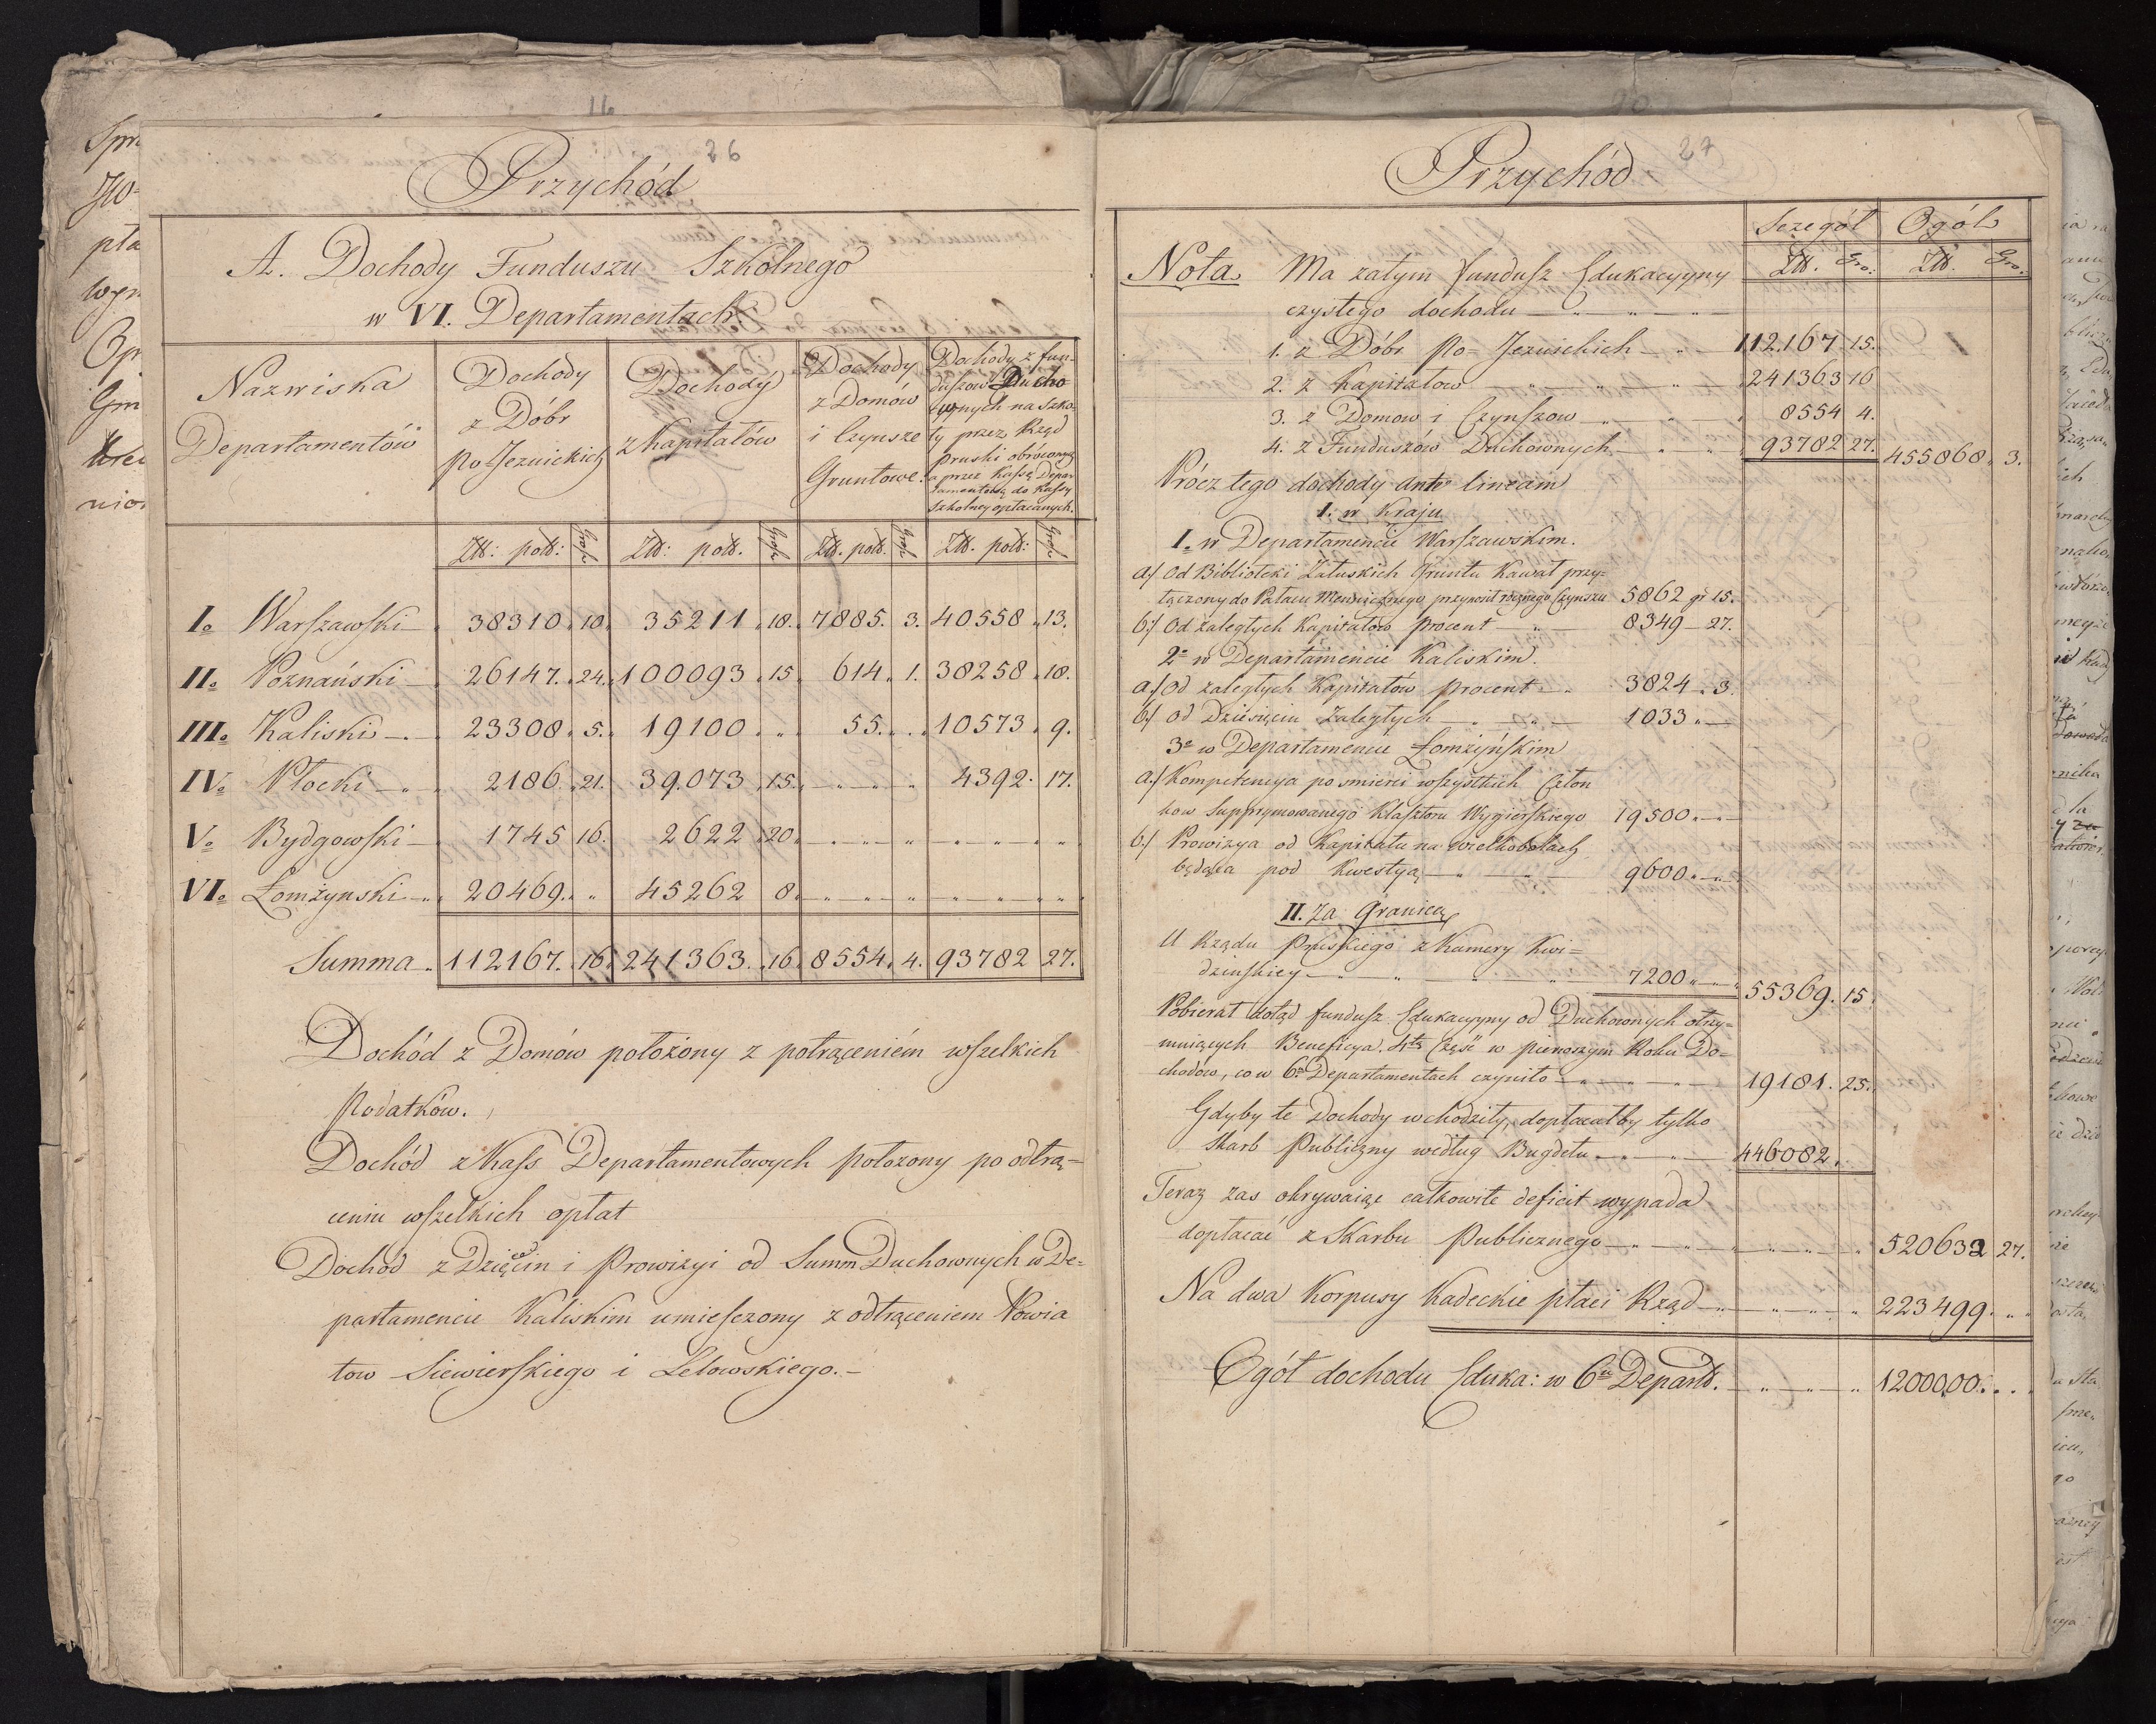 16
26
Przychód
A. Dochody Funduszu Szkólnego
w VI. Departamentach
Nazwiska Departamentów | Dochody z Dóbr Po-Jezuickich | Dochody z Kapitałów | Dochody z Domów i Czynsze Gruntowe. | Dochody z funduszów Duchownych na szkoły przez Rząd pruski obrócony a przez Kassę Departamentową do Kassy szkolney opłacanych.
Złł: polł: | Grosz | Złł: polł. | Grosz | Złł. polł. | Grosz | Złł. polł: | Grosz
I. Warszawski | 38310 | 10. | 35211 | 18. | 7885. | 3. | 40558 | 13.
II. Poznański | 26147. | 24. | 100093 | 15 | 614 | 1. | 38258 | 18.
III. Kaliski | 23308 | 5. | 19100 | „ | 55. | „ | 10573 | 9.
IV. Płocki | 2186. | 21. | 39.073 | 15. | „ | „ | 4392. | 17.
V. Bydgowski | 1745 | 16. | 2622 | 20 | „ | „ | „ | „
VI. Łomżynski | 20469. | „ | 45262 | 8 | „ | „ | „ | „
Summa | 112167. | 16. | 241363. | 16 | 8554. | 4. | 93782 | 27.
Dochód z Domów położony z potrąceniem wszelkich
Podatków.
Dochód z Kass Departamentowych położony po odtrą=
ceniu wszelkich opłat
Dochód z Dzięcin i Prowizyi od Summ Duchownych w De=
partamencie Kaliskim umieszczony z odtrąceniem Powia
tow Siewierskiego i Lelowskiego.–
27
Przychód
Szegół | Ogół
Złł. | Gro: | Złł. | Gro:
Nota. Ma zatym fundusz Edukacyyny
czystego dochodu
1. z Dóbr Po=Jezuickich 112.167 15.
2. z Kapitałow 241363 16
3. z Domow i Czynszow 8554 4.
4. z Funduszow Duchownych 93782 27. 455868. 3.
Prócz tego dochody ante lineam
1. w Kraju
I. w Departamencie Warszawskim.
a./ Od Biblioteki Załuskich Gruntu Kawał przy=
łączony do Pałacu przynosił rocznego Czynszu 5862 gr 15.
b./ Od zaległych Kapitałów procent 8349 – 27.
2e w Departamencie Kaliskim.
a./ Od zaległych Kapitałów procent 3824 „ 3.
b./ Od Dziesięcin Zaległych 1033 „
3e w Departamencie Łomżyńskim
a./ Kompetencya po smierci wszystkich Człon
kow Supprymowanego Klasztoru Wygierskiego 19500.
b./ Prowizya od Kapitału na Wielkobolach
będąca pod kwestyą 9600.
II. Za Granicą
U Rządu Pruskiego z Kamery Kwi=
dzinskiey 7200 55369. 15.
Pobierał dotąd fundusz Edukacyyny od Duchownych otrzy=
muiących Beneficya. 4tą Część w pierwszym Roku Do=
chodow, co w 6u Departamentach czyniło 19181. 25.
Gdyby te Dochody wchodziły, dopłacałby tylko
Skarb Publiczny według Bugdetu 446082.
Teraz zas okrywaiąc całkowite deficit wypada
dopłacać z Skarbu Publicznego 520632 27.
Na dwa Korpusy Kadeckie płaci Rząd 223499.
Ogół dochodu Eduka: w 6u Departł. 1200000.